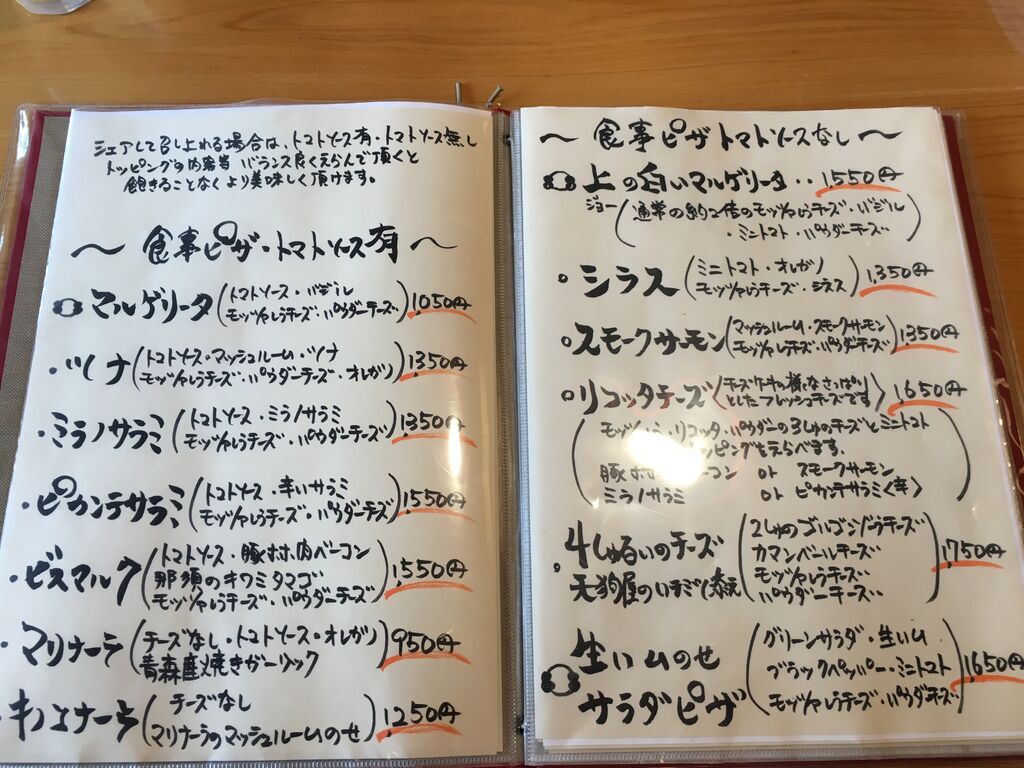 シェアして召し上れる場合は、トマトソース有・トマトソース無し
トッピングの内容等 バランス良くえらんで頂くと
飽きることなくより美味しく頂けます。
〜 食事ピザ・トマトソース有 〜
マルゲリータ(トマトソース・バジル
モッツァレラチーズ・パウダーチーズ) 1,050円
・ツナ(トマトソース・マッシュルーム・ツナ
モッツァレラチーズ・パウダーチーズ・オレガノ) 1,350円
・ミラノサラミ(トマトソース・ミラノサラミ
モッツァレラチーズ・パウダーチーズ) 1,350円
・ピカンテサラミ(トマトソース・辛いサラミ
モッツァレラチーズ・パウダーチーズ) 1,550円
・ビスマルク(トマトソース・豚ホホ肉ベーコン
那須のキワミタマゴ
モッツァレラチーズ・パウダーチーズ) 1,550円
・マリナーラ(チーズなし・トマトソース・オレガノ
青森産焼きガーリック) 950円
・キノコナーラ(チーズなし
マリナーラのマッシュルームのせ) 1,250円
〜 食事ピザトマトソースなし 〜
上の白いマルゲリータ・・1,550円
ジョー(通常の約2倍のモッツァレラチーズ・バジル
・ミニトマト・パウダーチーズ)
・シラス(ミニトマト・オレガノ
モッツァレラチーズ・シラス) 1,350円
・スモークサーモン(マッシュルーム・スモークサーモン
モッツァレラチーズ・パウダーチーズ) 1,350円
・リコッタチーズ〈チーズケーキの様なさっぱり
としたフレッシュチーズです〉 1,650円
(モッツァ・リコッタ・パウダーの3しゅのチーズとミニトマト
ッピングをえらべます。
豚ホホ コン or スモークサーモン
ミラノサラミ or ピカンテサラミ〈辛〉)
・4しゅるいのチーズ
天狗屋のハチミツ添え
(2しゅのゴルゴンゾーラチーズ
カマンベールチーズ
モッツァレラチーズ
パウダーチーズ) 1,750円
生ハムのせ
サラダピザ
(グリーンサラダ・生ハム
ブラックペッパー・ミニトマト
モッツァレラチーズ・パウダーチーズ) 1,650円